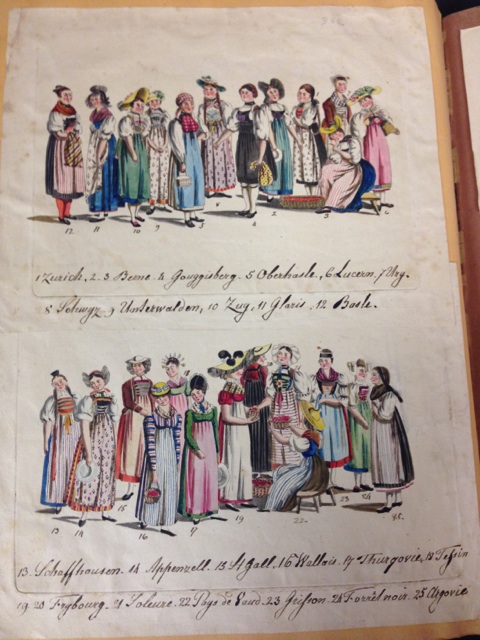 12 11 10 9 5 8 4 2 3 6
1 Zurich. 2. 3 Berne. 4 Gouggisberg. 5 Oberhasle, 6 Lucern, 7 Ury.
8 Schwyz, 9 Unterwalden, 10 Zug, 11 Glaris, 12 Basle.
18
13 14 15 16 17 19 22. 23 24 25.
13 Schaffhausen. 14 Appenzell. 15 St Gall. 16 Wallais. 17 Thurgovie. 18 Tessin
19 20 Frybourg. 21 Soleure. 22 Pays de Vaud. 23 Grison. 24 Forrêt noir. 25 Argovie